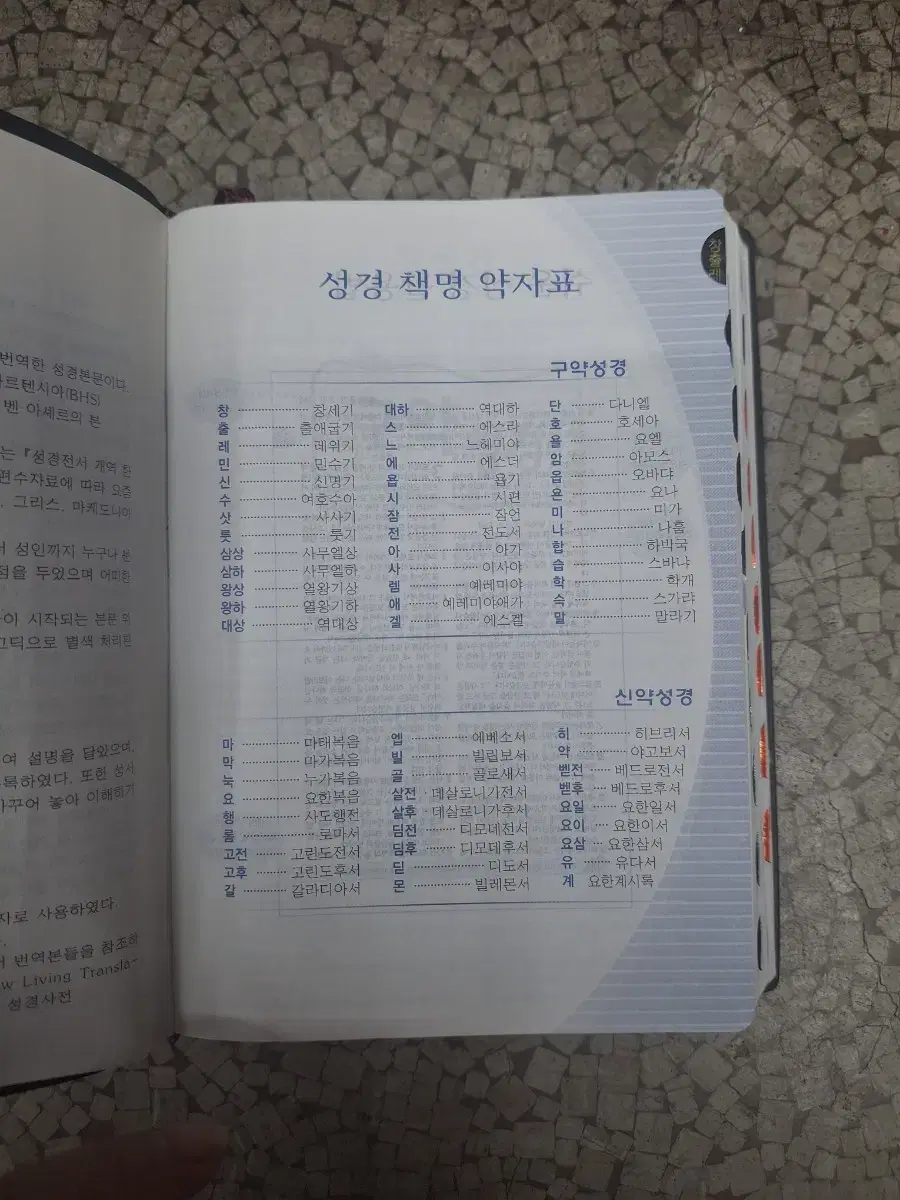 번역한 성경본문이다.
(BHS)
벤 아세르의 본
는 『성경전서 개역 한
편수자료에 따라 요즘
그리스, 마케도니아
서 성인까지 누구나
점을 두었으며
이 시작되는 본문 위
고딕으로 별색 처리된
여 설명을 달았으며,
록하였다. 또한 성서
바꾸어 놓아 이해하기
자로 사용하였다
번역본들을 참조하
w Living Transla-
성경사전
성경 책명 약자표
구약성경
창 창세기
출 출애굽기
레 레위기
민 민수기
신 신명기
수 여호수아
삿 사사기
룻 룻기
삼상 사무엘상
삼하 사무엘하
왕상 열왕기상
왕하 열왕기하
대상 역대상
대하 역대하
스 에스라
느 느헤미야
에 에스더
욥 욥기
시 시편
잠 잠언
전 전도서
아 아가
사 이사야
렘 예레미야
애 예레미야애가
겔 에스겔
단 다니엘
호 호세아
욜 요엘
암 아모스
옵 오바댜
욘 요나
미 미가
나 나훔
합 하박국
습 스바냐
학 학개
슥 스가랴
말 말라기
신약성경
마 마태복음
막 마가복음
눅 누가복음
요 요한복음
행 사도행전
롬 로마서
고전 고린도전서
고후 고린도후서
갈 갈라디아서
엡 에베소서
빌 빌립보서
골 골로새서
살전 데살로니가전서
살후 데살로니가후서
딤전 디모데전서
딤후 디모데후서
딛 디도서
몬 빌레몬서
히 히브리서
약 야고보서
벧전 베드로전서
벧후 베드로후서
요일 요한일서
요이 요한이서
요삼 요한삼서
유 유다서
계 요한계시록
창출레